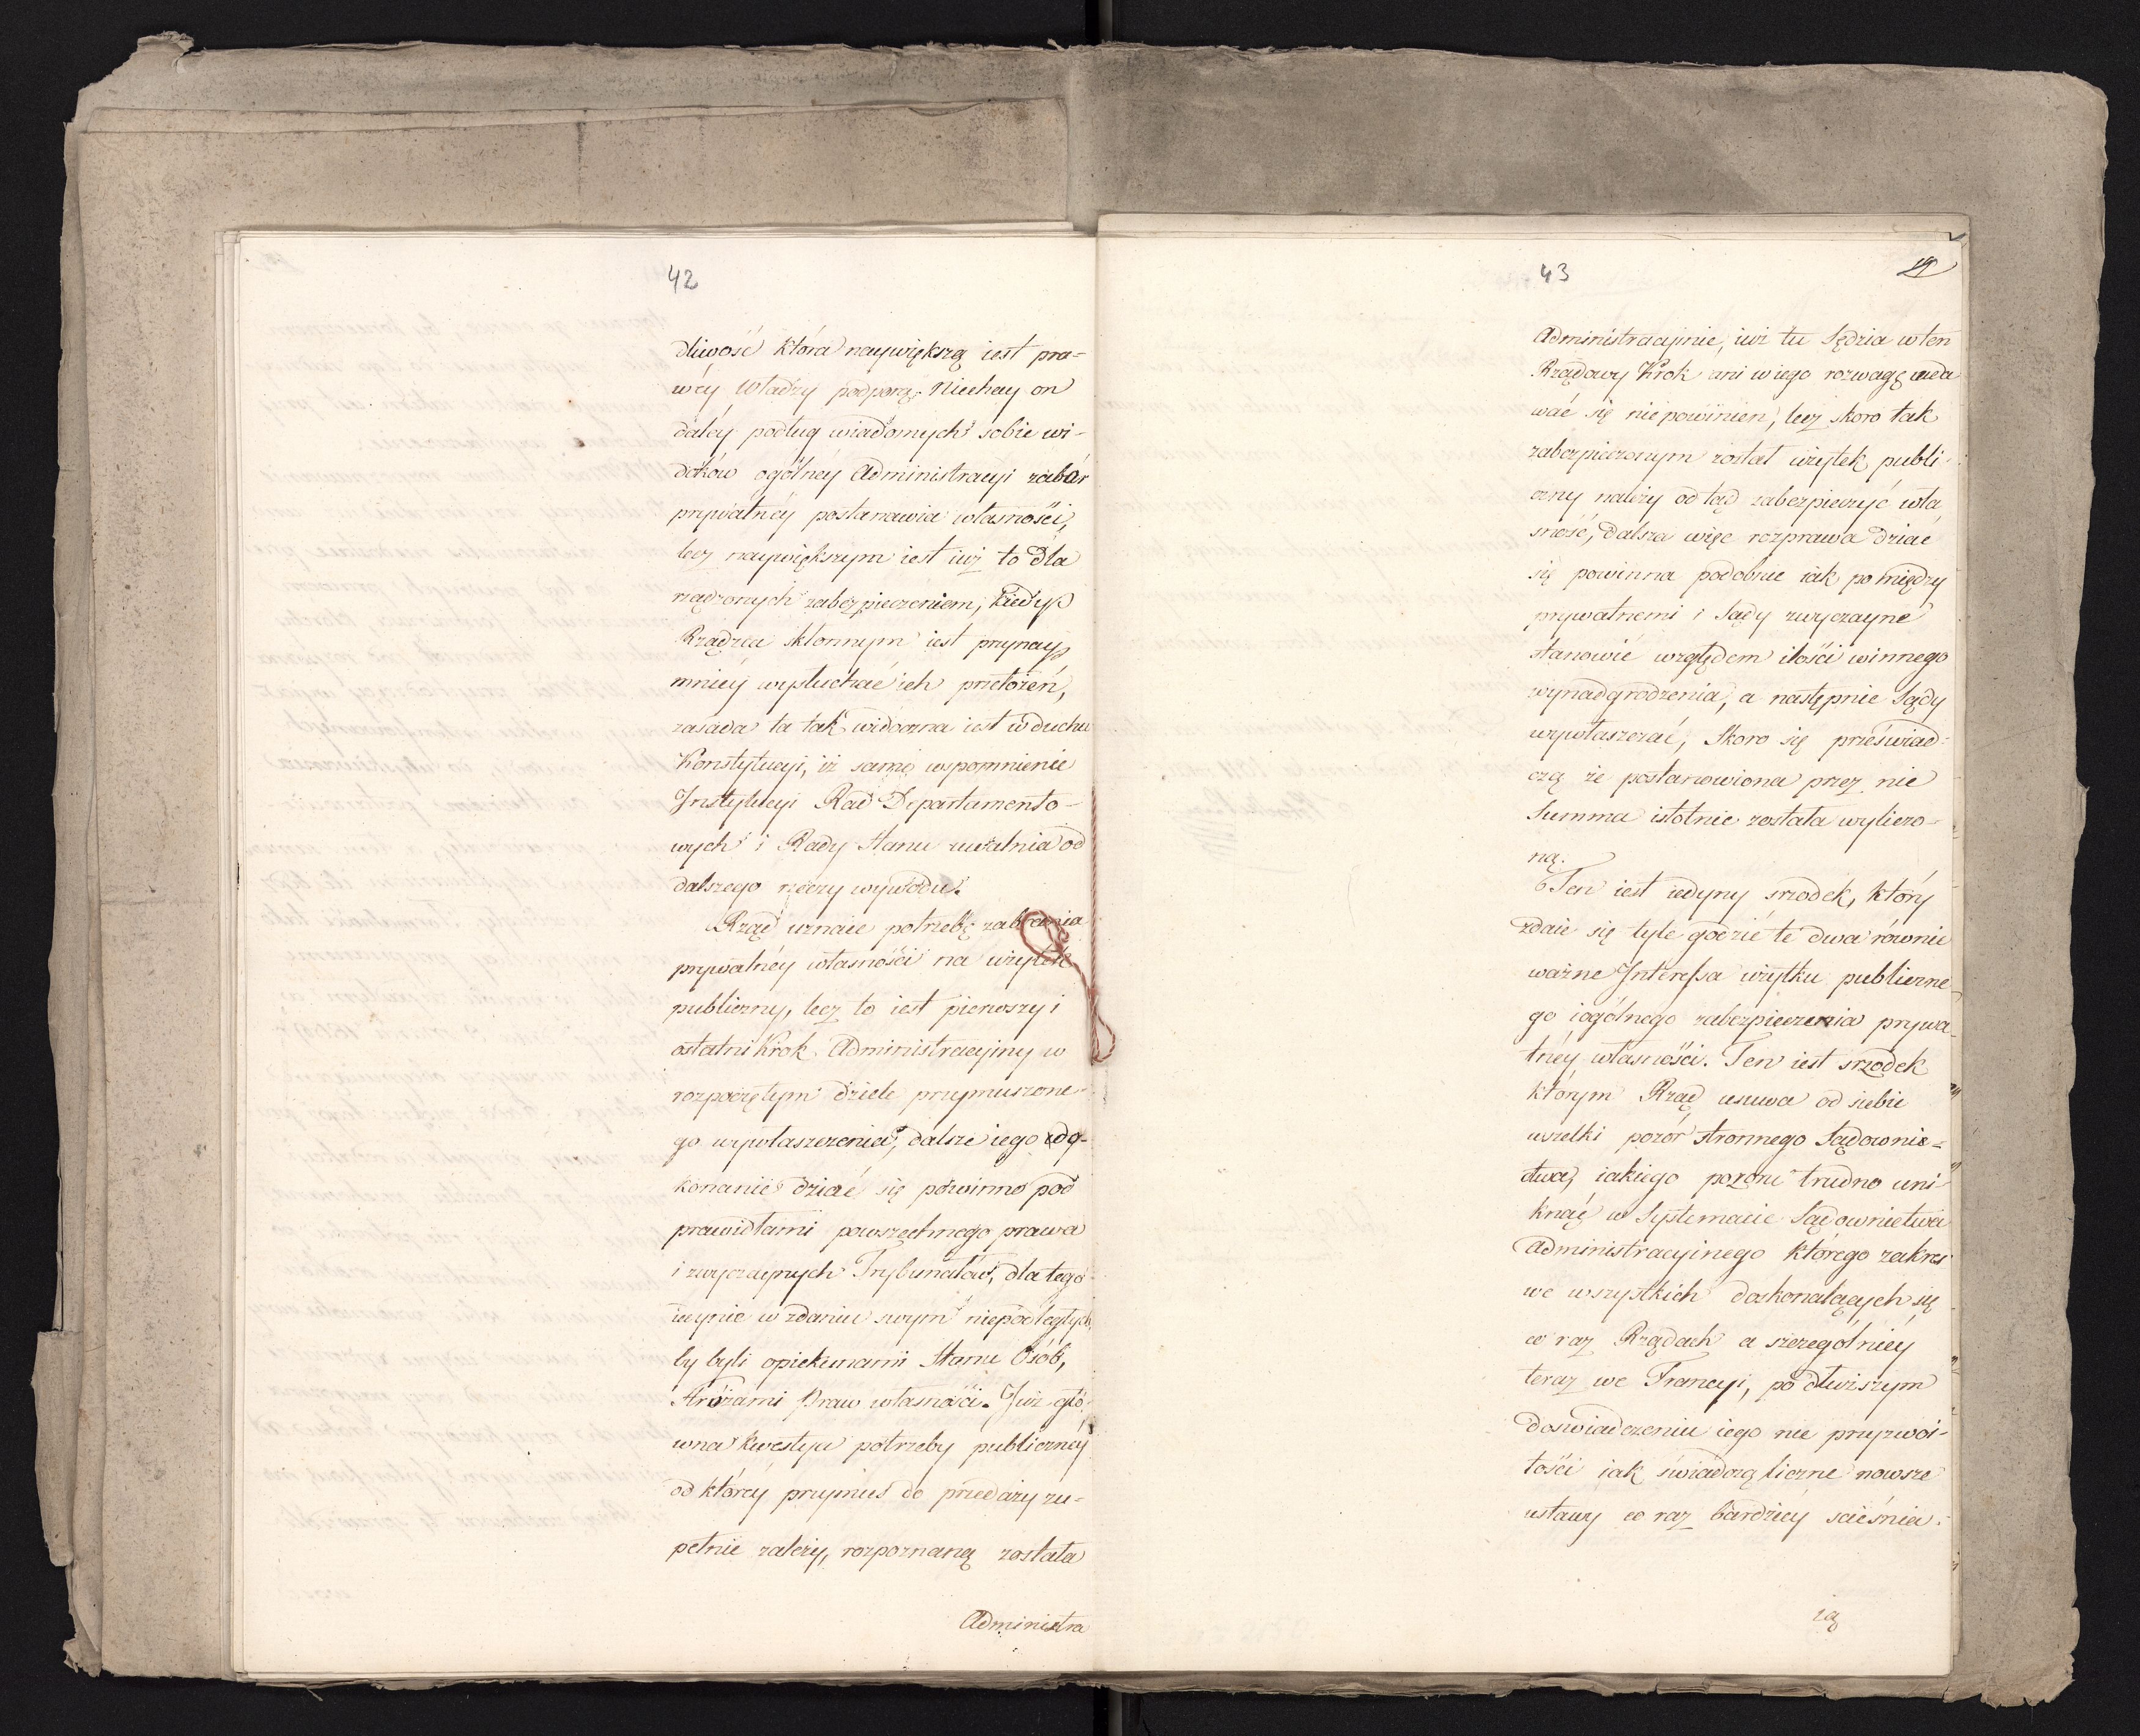 42
dliwość która naywiększą iest pra-
wéy Władzy podporą. Niechay on
daléy podług wiadomych sobie wi-
doków ogólnéy Administracyi zabór
prywatnéy postanawia własności,
lecz naywiększym iest iuż to dla
rządzonych zabezpieczeniem, kiedy
Rządzca skłonnym iest przynay
mniéy wysłuchać ich przełożeń,
zasada ta tak widoczna iest w duchu
Konstytucyi, iż samo wspomnienie
Instytucyi Rad Departamento-
wych i Rady Stanu uwalnia od
dalszego rzeczy wywodu.
Rząd uznaie potrzebę zabrania
prywatnéy własności na użytek
publiczny, lecz to iest pierwszy i
ostatni Krok Administracyiny w
rozpoczętym dziele przymuszone-
go wywłaszczenia, dalsze iego do-
konanie dziać się powinno pod
prawidłami powszechnego prawa
i zwyczaynych Trybunałów, dla tego
iedynie w zdaniu swym niepodległych,
by byli opiekunami Stanu Osób,
Stróżami Praw własności. Już głó-
wna kwestya potrzeby publicznéy
od któréy przymus do przedaży zu-
pełnie zależy, rozpoznaną została
Administra
43
19
Administracyinie, iuż tu Sędzia w ten
Rządowy Krok ani w iego rozwagę wda
wać się nie powinien, lecz skoro tak
zabezpieczonym został użytek publi-
czny należy odtąd zabezpieczyć wła
sność, dalsza więc rozprawa dziać
się powinna podobnie iak pomiędzy
prywatnemi i Sądy zwyczayne
stanowić względem ilości winnego
wynadgrodzenia, a następnie Sądy
wywłaszczać, Skoro się przeświad-
czą że postanowiona przez nie
Summa istotnie została wyliczo-
ną.
Ten iest iedyny srzodek, który
zdaie się tyle godzić te dwa równie
ważne Interessa użytku publiczne
go i ogólnego zabezpieczenia prywa-
tnéy własności. Ten iest srzodek
którym Rząd usuwa od siebie
wszelki pozór stronnego Sądownic=
twa, iakiego pozoru trudno uni-
knąć w Systemacie Sądownictwa
Administracyinego którego zakres
we wszystkich doskonalących się
co raz Rządach a szczególniéy
teraz we Francyi, po dłuższym
doświadczeniu iego nie przyzwoi-
tości iak świadczą liczne nowsze
ustawy co raz bardziéy scieśnia-
ią